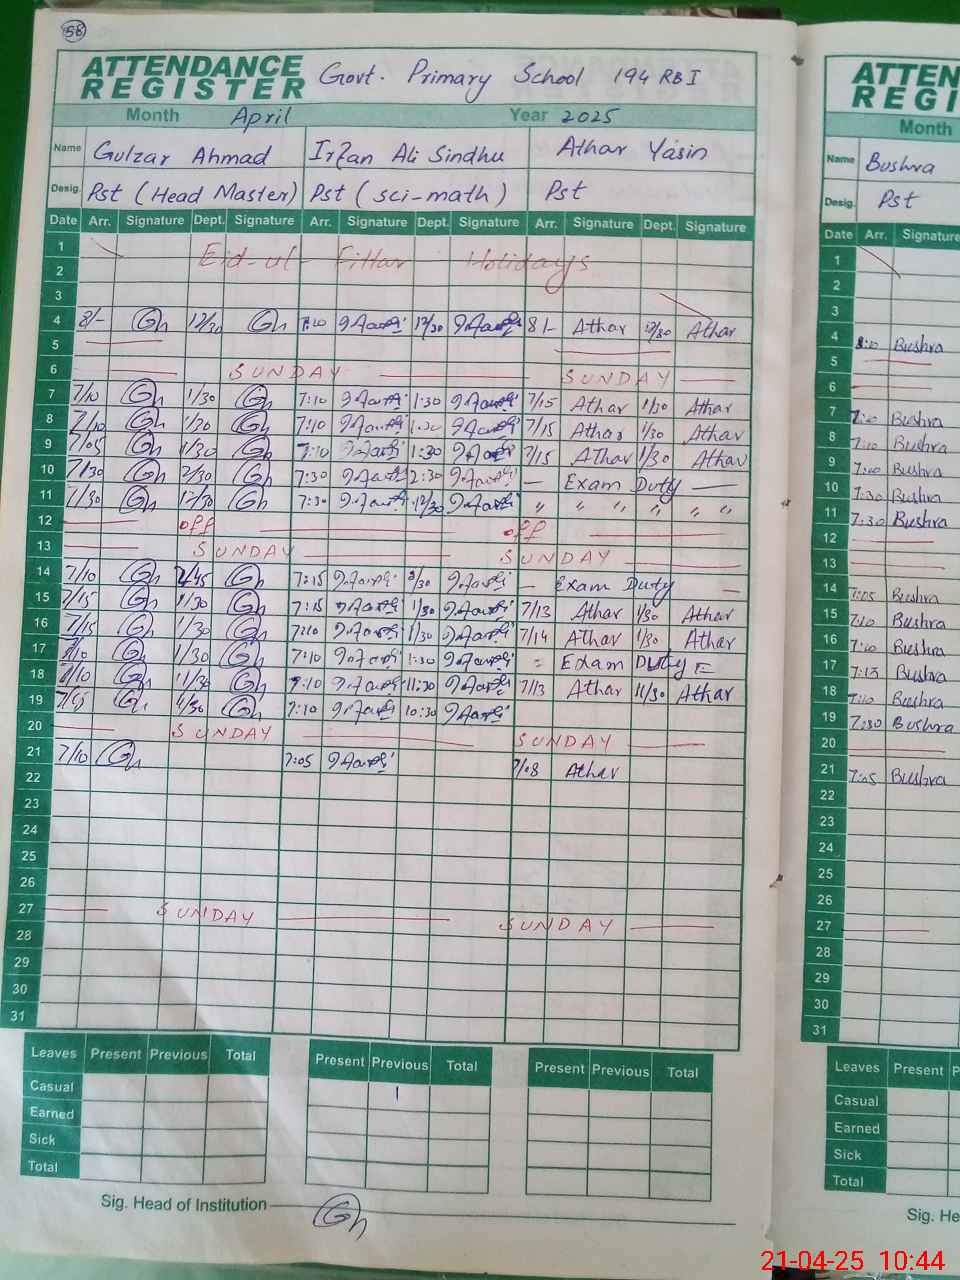 58
ATTENDANCE REGISTER Govt. Primary School 194 RB I
Month April Year 2025
Name Gulzar Ahmad Irfan Ali Sindhu Athar Yasin
Desig. Pst (Head Master) Pst (sci-math) Pst
Date Arr. Signature Dept. Signature Arr. Signature Dept. Signature Arr. Signature Dept. Signature
1 Eid-ul Fittar Holidays
2
3
4 8/- Gh 12/30 Gh 7:10 12/30 8/- Athar 12/30 Athar
5
6 SUNDAY SUNDAY
7 7/10 Gh 1/30 Gh 7:10 1:30 7/15 Athar 1/30 Athar
8 7/10 Gh 1/30 Gh 7:10 1:30 7/15 Athar 1/30 Athar
9 7/05 Gh 1/30 Gh 7:10 1:30 7/15 Athar 1/30 Athar
10 7/30 Gh 2/30 Gh 7:30 2:30 Exam Duty
11 7/30 Gh 12/30 Gh 7:30 12/30 " " " " " "
12 off off
13 SUNDAY SUNDAY
14 7/10 Gh Gh 7:15 Exam Duty
15 7/15 Gh 1/30 Gh 7:15 1/30 7/13 Athar 1/30 Athar
16 7/15 Gh 1/30 Gh 7:10 1/30 7/14 Athar 1/30 Athar
17 7/10 Gh 1/30 Gh 7:10 1:30 Exam Duty
18 7/10 Gh 11/30 Gh 7:10 11:30 7/13 Athar 11/30 Athar
19 Gh Gh 7:10 10:30
20 SUNDAY SUNDAY
21 7/10 Gh 7:05 7/08 Athar
22
23
24
25
26
27 SUNDAY SUNDAY
28
29
30
31
Leaves Present Previous Total Present Previous Total Present Previous Total
Casual 1
Earned
Sick
Total
Sig. Head of Institution Gh
ATTEN
REGI
Month
Name Bushra
Desig. Pst
Date Arr. Signature
1
2
3
4 Bushra
5
6
7 Bushra
8 7:10 Bushra
9 Bushra
10 7:30 Bushra
11 7:30 Bushra
12
13
14 7:05 Bushra
15 7:10 Bushra
16 Bushra
17 7:13 Bushra
18 7:10 Bushra
19 7:30 Bushra
20
21 7:05 Bushra
22
23
24
25
26
27
28
29
30
31
Leaves Present P
Casual
Earned
Sick
Total
Sig. He
21-04-25 10:44